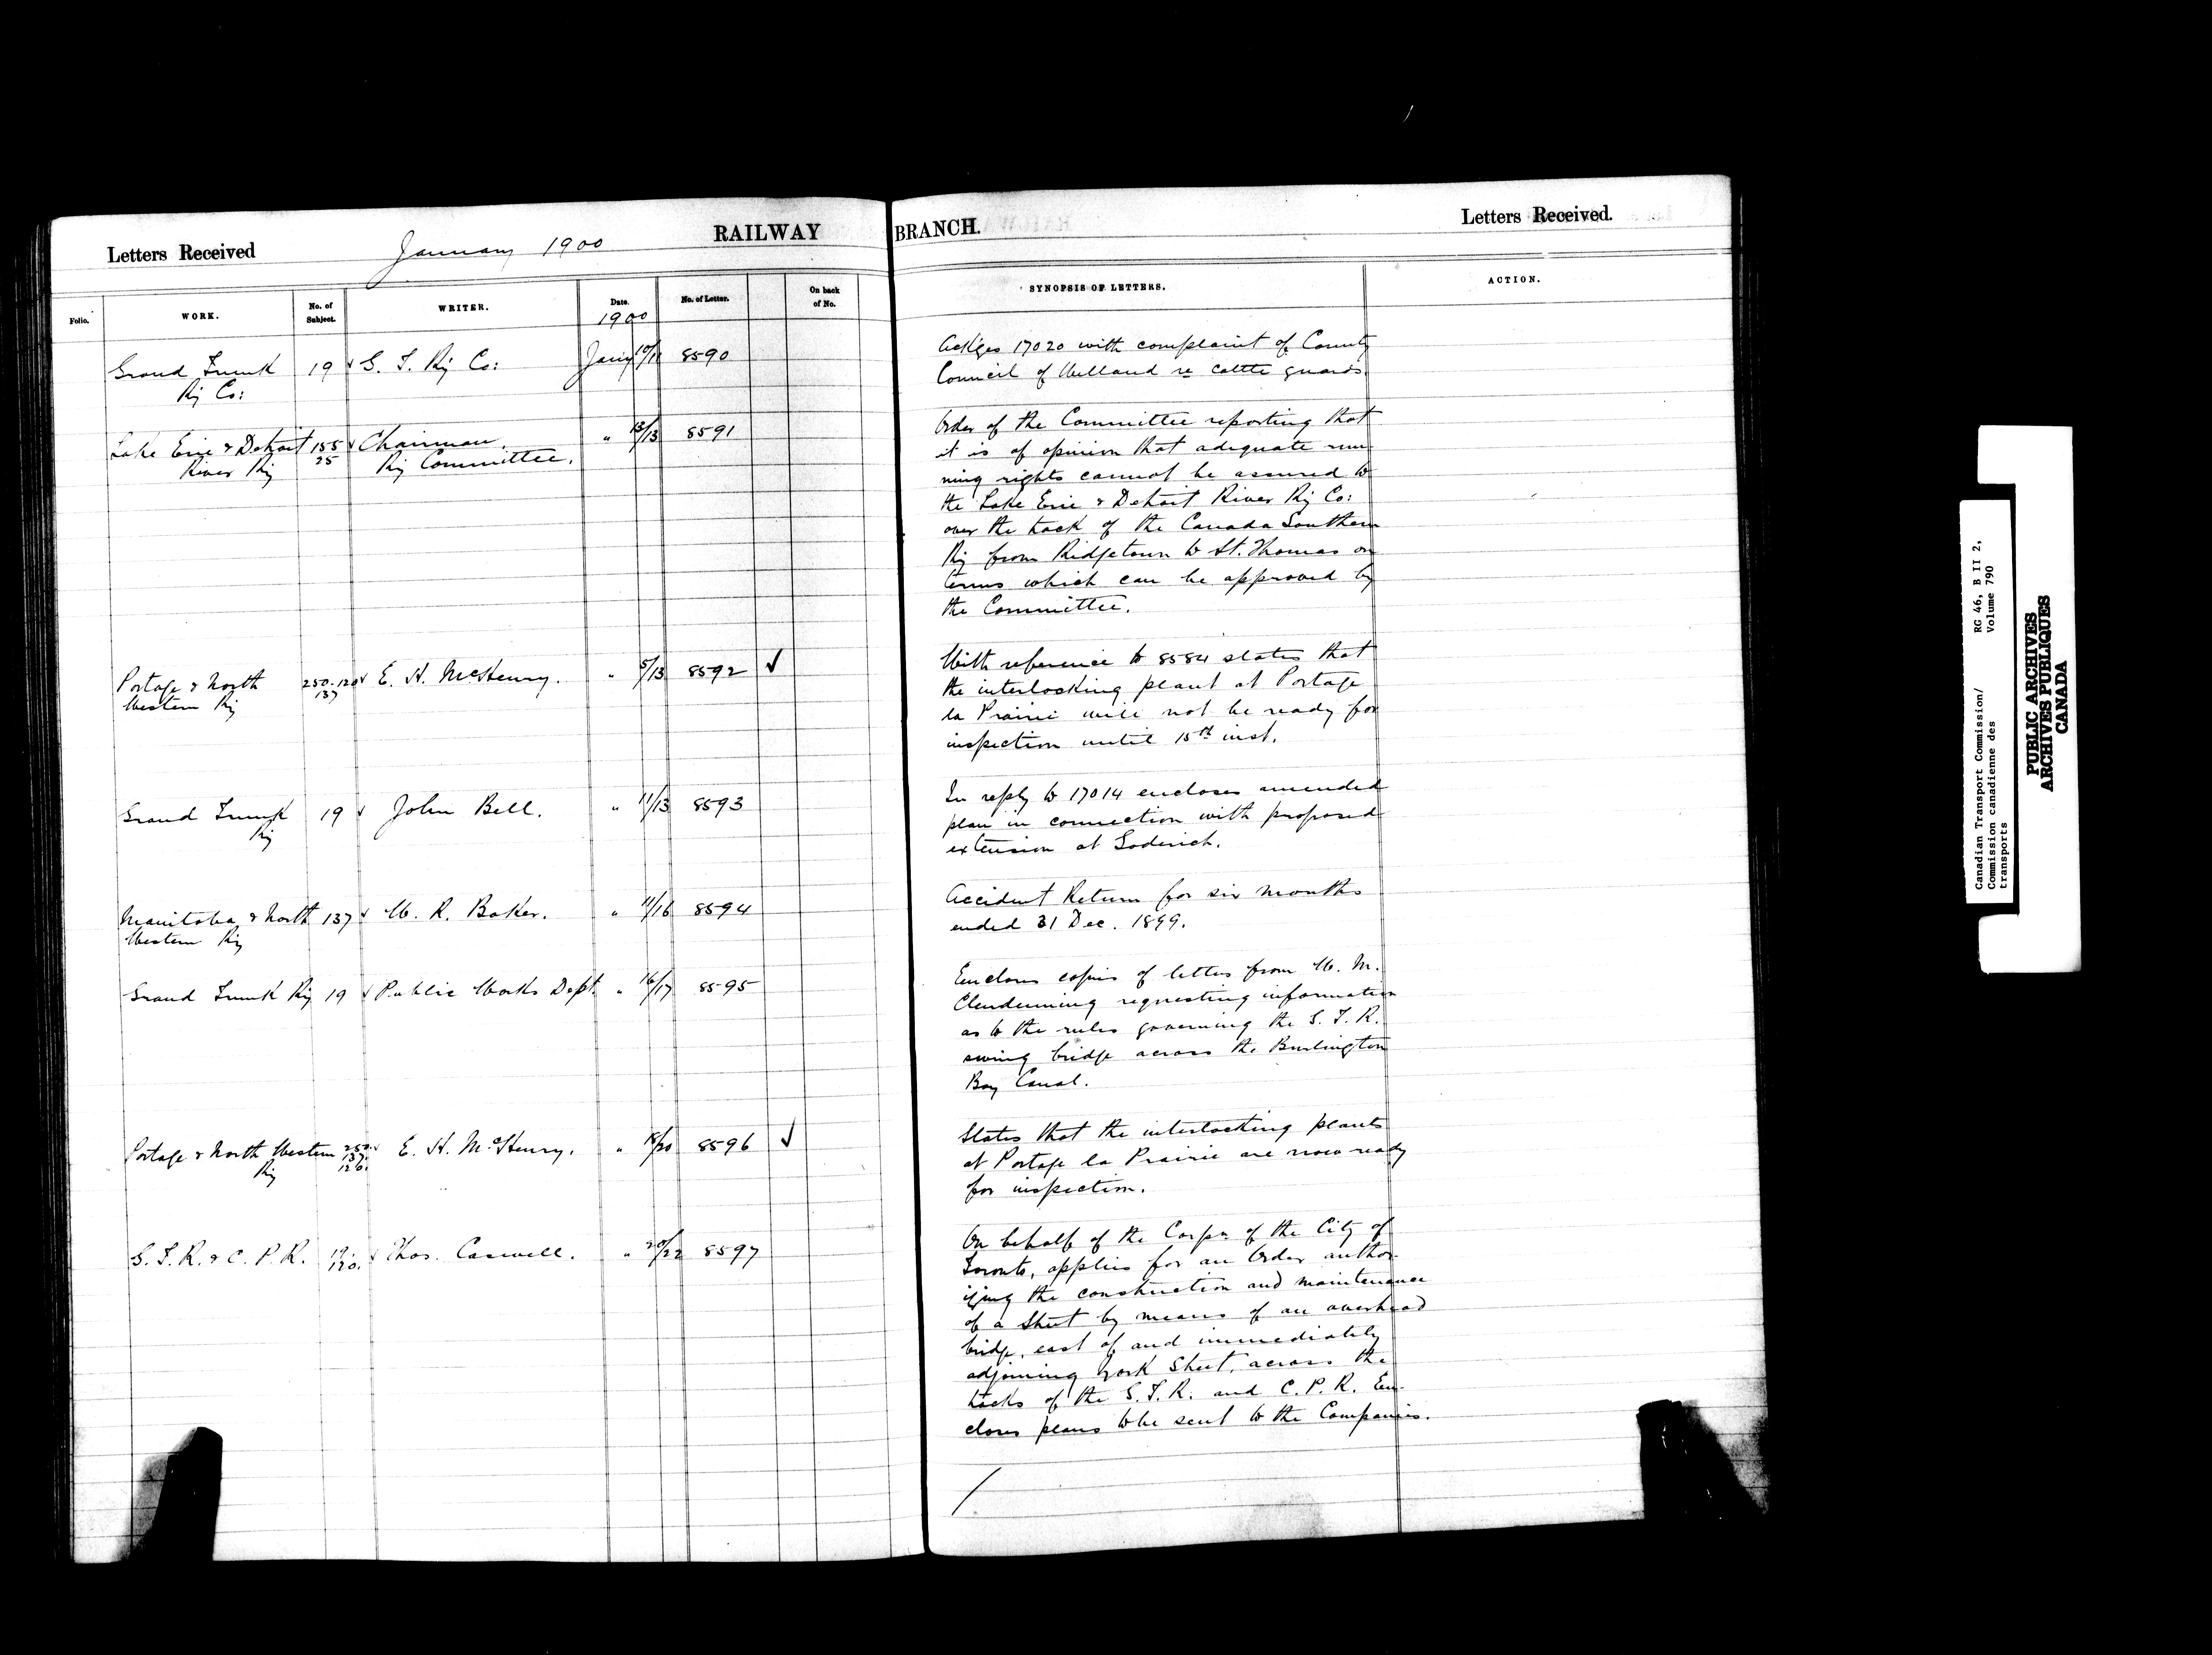 Letters Received
January 1900
RAILWAY
BRANCH.
Letters Received.
Folio.
WORK.
No. of Subject.
WRITER.
Date.
1900
No. of Letter.
On back of No.
SYNOPSIS OF LETTERS.
ACTION.
Grand Trunk 19 ✓ G. T. Ry Co: Jany 10/11 8590
Ry Co:
Ackges 17020 with complaint of County
Council of Welland re cattle guards.
Lake Erie & Detroit 155 ✓ Chairman, " 13/13 8591
River Ry 25 Ry Committee.
Order of the Committee reporting that
it is of opinion that adequate run-
ning rights cannot be assured to
the Lake Erie & Detroit River Ry Co:
over the track of the Canada Southern
Ry from Ridgetown to St. Thomas on
terms which can be approved by
the Committee.
Portage & North 250.120 ✓ E. H. McHenry. " 5/13 8592 ✓
Western Ry 137
With reference to 8584 states that
the interlocking plant at Portage
la Prairie will not be ready for
inspection until 15th inst.
Grand Trunk 19 ✓ John Bell. " 11/13 8593
Ry
In reply to 17014 encloses amended
plan in connection with proposed
extension at Goderich.
Manitoba & North 137 ✓ W. R. Baker. " 11/16 8594
Western Ry
Accident Return for six months
ended 31 Dec. 1899.
Grand Trunk Ry 19 ✓ Public Works Dept. " 16/17 8595
Encloses copies of letter from W. M.
Clendenning requesting information
as to the rules governing the G. T. R.
swing bridge across the Burlington
Bay Canal.
Portage & North Western 250. ✓ E. H. McHenry. " 18/20 8596 ✓
Ry 137. 120.
States that the interlocking plants
at Portage la Prairie are now ready
for inspection.
G. T. R. & C. P. R. 19. ✓ Thos. Caswell. " 20/22 8597
120.
On behalf of the Corpn of the City of
Toronto, applies for an Order author-
izing the construction and maintenance
of a Street by means of an overhead
bridge, east of and immediately
adjoining York Street, across the
tracks of the G. T. R. and C. P. R. En-
closes plans to be sent to the Companies.
Canadian Transport Commission/
Commission canadienne des
transports
RG 46, B II 2,
Volume 790
PUBLIC ARCHIVES
ARCHIVES PUBLIQUES
CANADA